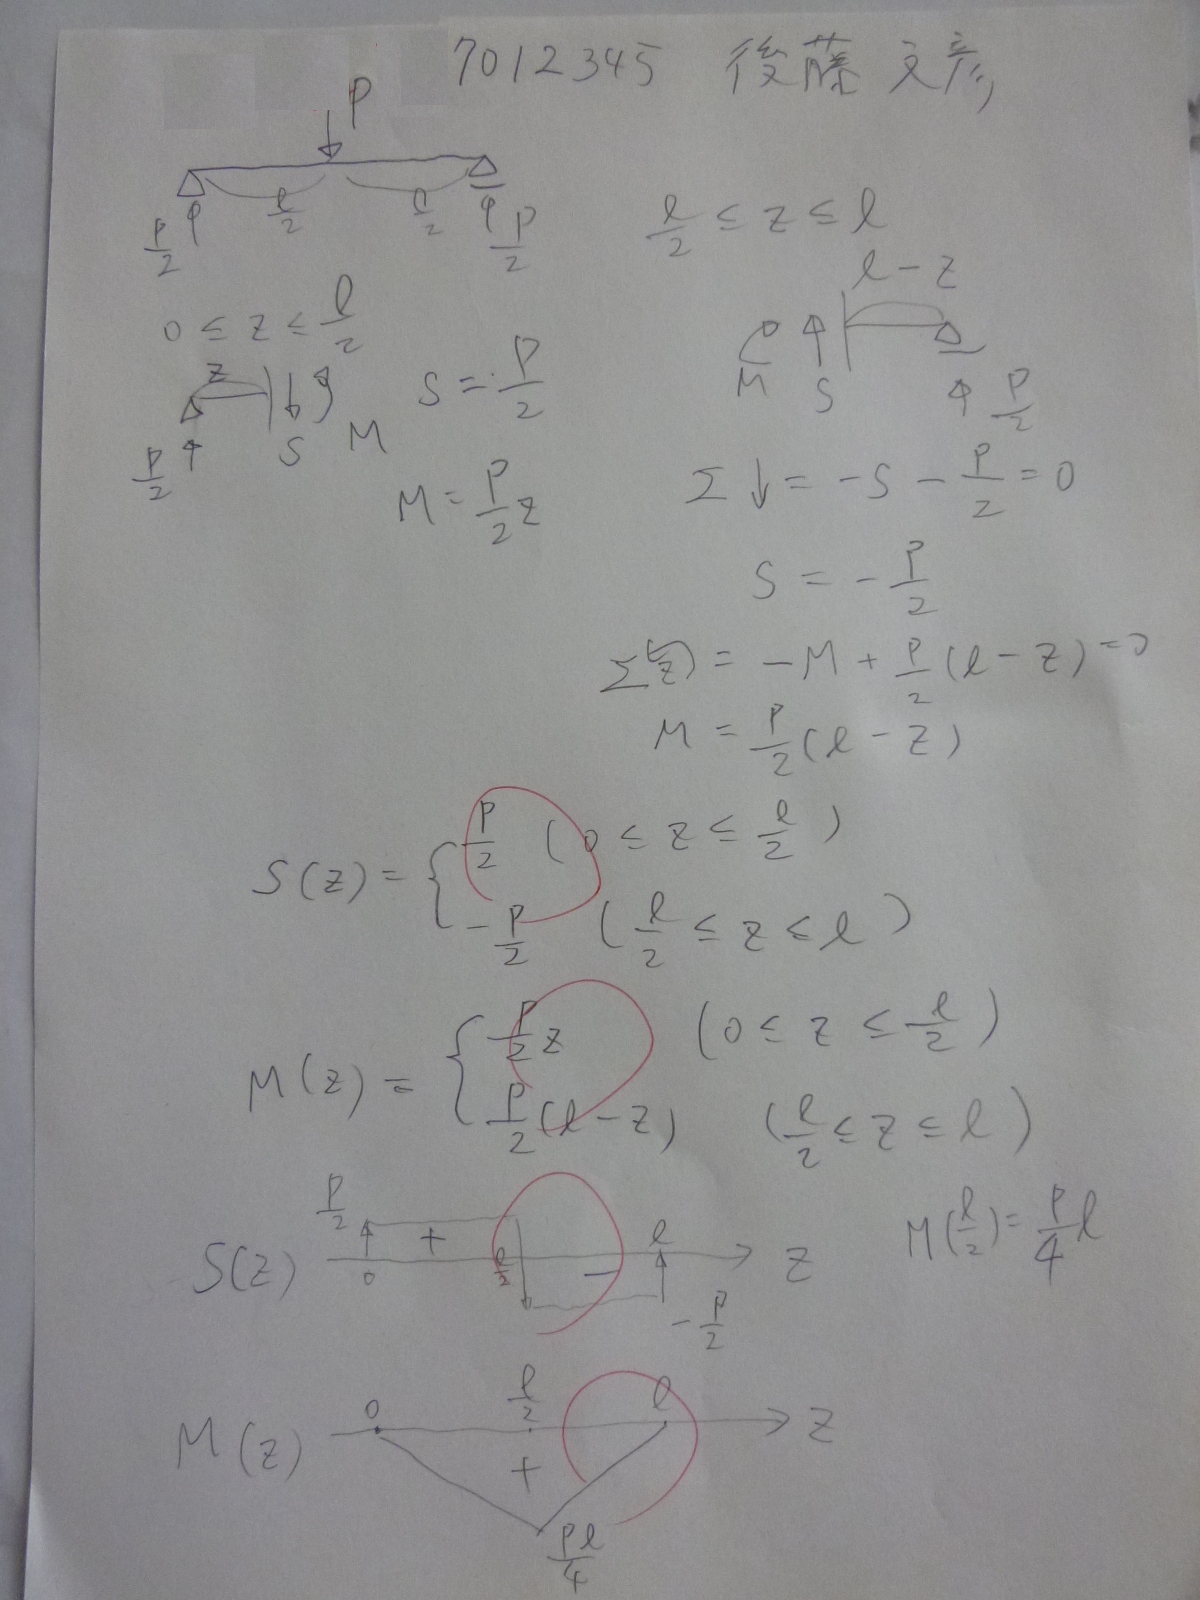 7012345 後藤 文彦
P
l/2 l/2
P/2 P/2
0 ≤ z ≤ l/2
z
P/2 S M
S = P/2
M = P/2 z
l/2 ≤ z ≤ l
l - z
M S P/2
Σ↓ = -S - P/2 = 0
S = -P/2
Σ(z) = -M + P/2 (l - z) = 0
M = P/2 (l - z)
S(z) = { P/2 (0 ≤ z ≤ l/2)
-P/2 (l/2 ≤ z ≤ l)
M(z) = { P/2 z (0 ≤ z ≤ l/2)
P/2 (l - z) (l/2 ≤ z ≤ l)
M(l/2) = P/4 l
P/2
S(z) 0 + l/2 - l z
-P/2
M(z) 0 l/2 l z
+
Pl/4